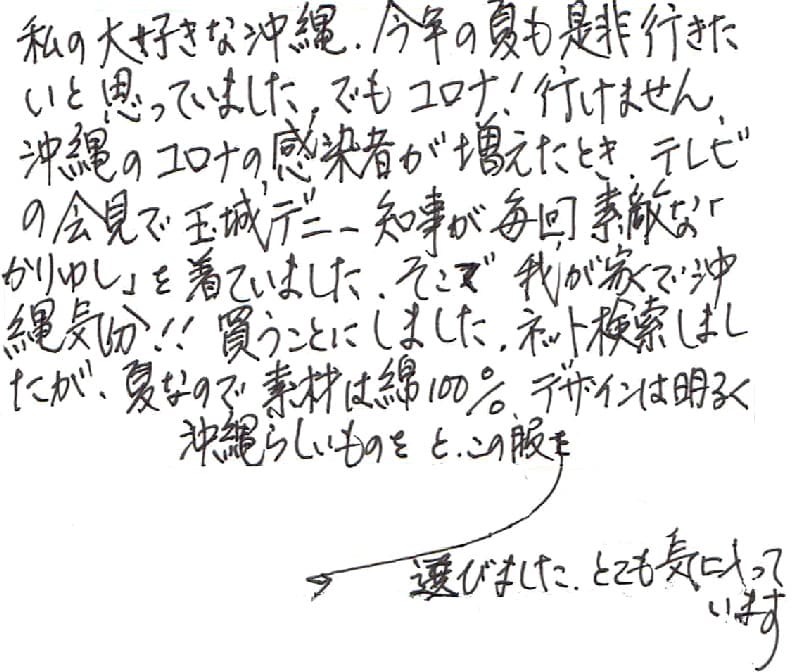 私の大好きな沖縄、今年の夏も是非行きた
いと思っていました、でもコロナ！行けません、
沖縄のコロナの感染者が増えたとき、テレビ
の会見で玉城デニー知事が毎回素敵な「
かりゆし」を着ていました、そこで我が家で沖
縄気分！！買うことにしました、ネット検索しまし
たが、夏なので素材は綿100%、デザインは明るく
沖縄らしいものをと、この服を
選びました、とても気に入って
います